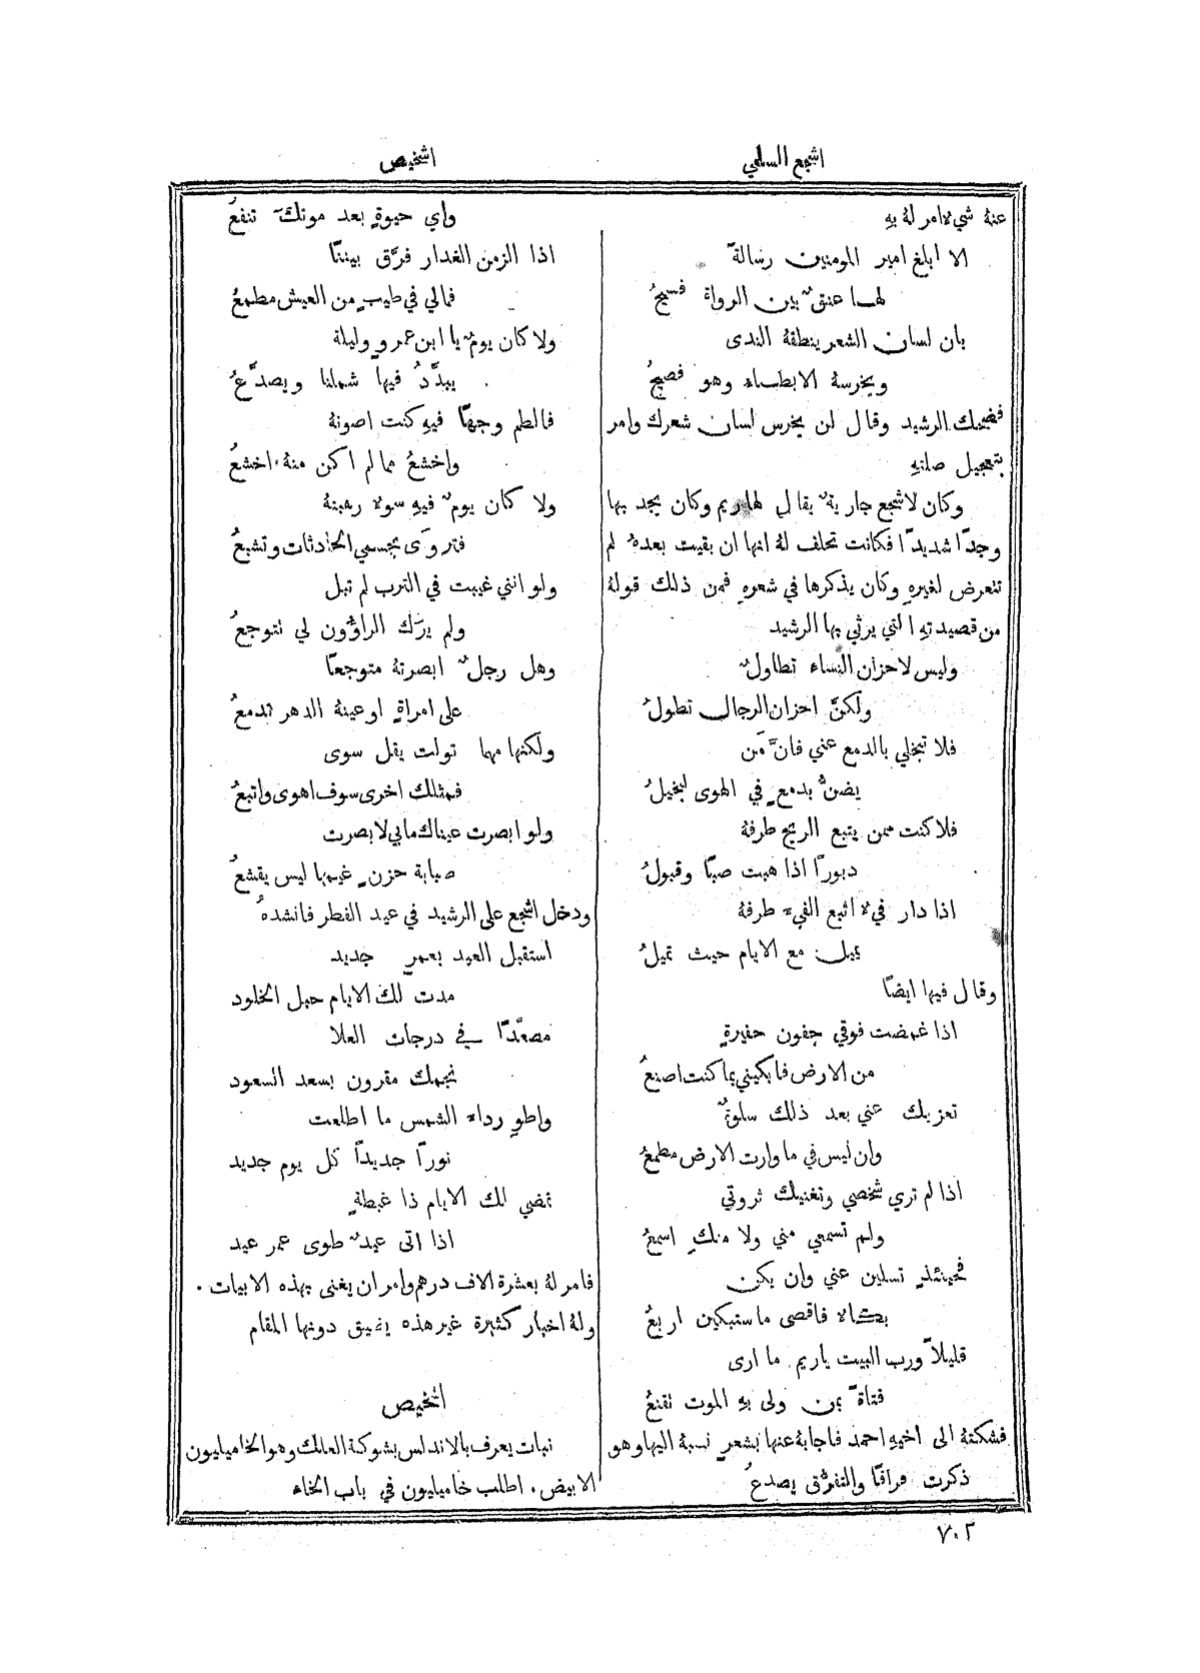 اشجع السلمي
اشخيص
عنهُ شيءٍ لامر لهُ بهِ
الا ابلغ امير المومنين رسالةً
لها عنقٌ بين الرواة فسيحُ
بان لسان الشعر ينطقهُ الندى
ويخرسهُ الابطاء وهو فصيحُ
فضحك الرشيد وقال لن يخرس لسان شعرك وامر
بتعجيل صلتهِ
وكان لاشجع جاريةٌ يقال لها ريم وكان يجد بها
وجدًا شديدًا فكانت تحلف لهُ انها ان بقيت بعدهُ لم
تتعرض لغيرهِ وكان يذكرها في شعرهِ فمن ذلك قولهُ
من قصيدتهِ التي يرثي بها الرشيد
وليس لاحزان النساء تطاولٌ
ولكنَّ احزان الرجال تطولُ
فلا تبخلي بالدمع عني فانَّ مَن
يضنُّ بدمعٍ في الهوى لبخيلُ
فلا كنت ممن يتبع الريح طرفهُ
دبورًا اذا هبت صبًا وقبولُ
اذا دار فيءٌ اتبع الفيء طرفهُ
يميل مع الايام حيث تميلُ
وقال فيها ايضًا
اذا غمضت فوقي جفون حفيرةٍ
من الارض فابكيني بما كنت اصنعُ
تعزيك عني بعد ذلك سلوةٌ
وان ليس في ما وارت الارض مطمعُ
اذا لم تري شخصي وتغنيك ثروتي
ولم تسمعي مني ولا منكِ اسمعُ
فحينئذٍ تسلين عني وان يكن
بكاءٌ فاقصى ما ستبكين اربعُ
قليلاً ورب البيت ياريم ما ارى
فتاةً بمن ولى بهِ الموت تقنعُ
فشكتهُ الى اخيهِ احمد فاجابهُ عنها بشعرٍ نسبهُ اليها وهو
ذكرت فراقًا والتفرُّق يصدعُ
واي حيوةٍ بعد موتك تنفعُ
اذا الزمن الغدار فرَّق بيننا
فمالي في طيبٍ من العيش مطمعُ
ولا كان يومٌ يا ابن عمروٍ وليلة
يبدَّدُ فيها شملنا ويصدَّعُ
فالطم وجهًا فيهِ كنت اصونهُ
واخشعُ مما لم اكن منهُ اخشعُ
ولا كان يومٌ فيهِ سوءٌ رهبتهُ
فتروَى بجسمي الحادثات وتشبعُ
ولو انني غيبت في الترب لم تبل
ولم يرَك الراؤُون لي تتوجعُ
وهل رجلٌ ابصرتهُ متوجعًا
على امراةٍ او عينهُ الدهر تدمعُ
ولكنها مهما تولت يقل سوى
فمثلك اخرى سوف اهوى واتبعُ
ولو ابصرت عيناك مابي لابصرت
صبابة حزنٍ غيمها ليس يقشعُ
ودخل اشجع على الرشيد في عيد الفطر فانشدهُ
استقبل العيد بعمرٍ جديد
مدت لك الايام حبل الخلود
مصعَّدًا في درجات العلا
نجمك مقرون بسعد السعود
واطوِ رداء الشمس ما اطلعت
نورًا جديدًا كل يوم جديد
تمضي لك الايام ذا غبطةٍ
اذا اتى عيدٌ طوى عمر عيد
فامر لهُ بعشرة الاف درهم وامر ان يغنى بهذه الابيات.
ولهُ اخبار كثيرة غير هذه يضيق دونها المقام
اشخيص
نبات يعرف بالاندلس بشوكة العلك وهو الخاميليون
الابيض. اطلب خاميليون في باب الخاء
٧٠٢